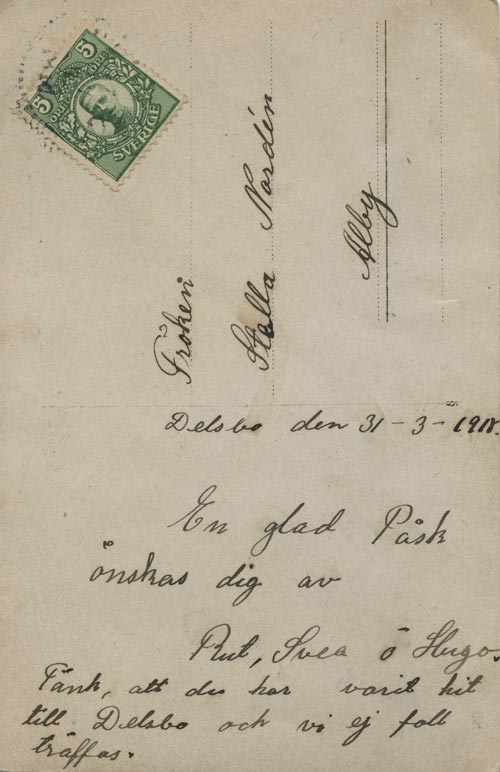 5 ÖRE
5 ÖRE
SVERIGE
Fröken
Stella Nordén
Alby
Delsbo den 31-3-1918.
En glad Påsk
önskas dig av
Rut, Svea ö Hugo.
Tänk, att du har varit hit
till Delsbo och vi ej fått
träffas.